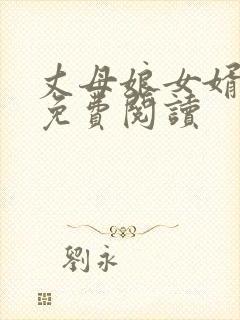 丈母娘女婿
免費閱讀
劉永